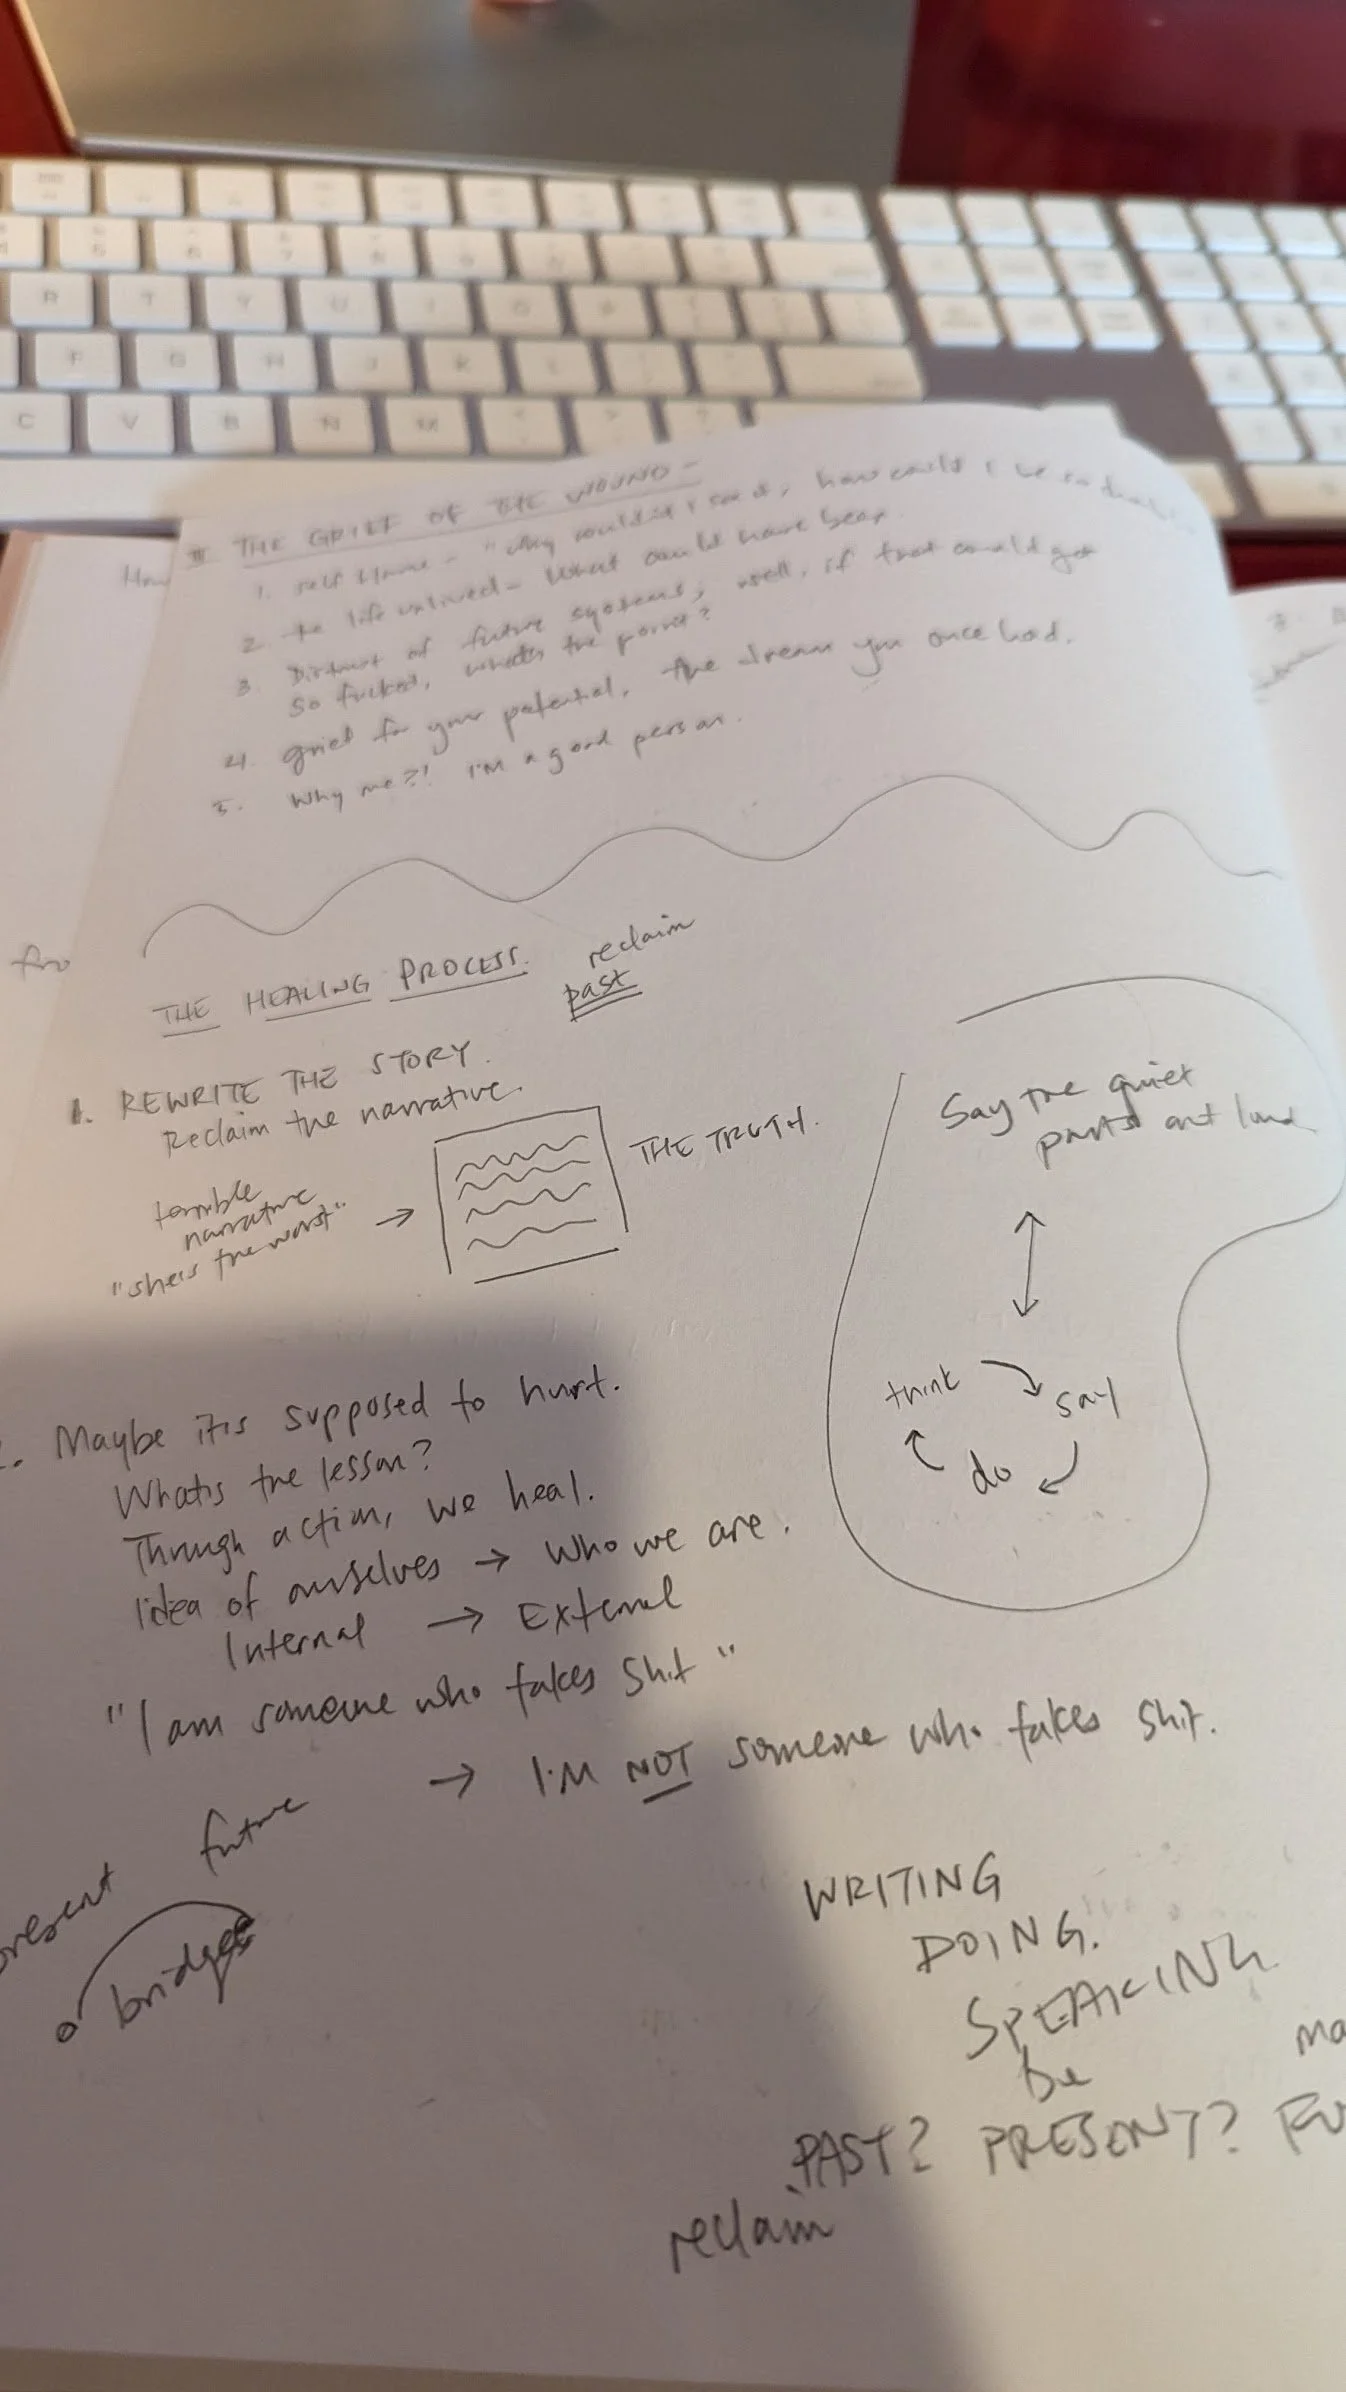 THE GRIEF OF THE WOUND -
1. self blame - "why couldn't I see it, how could I be so
2. the life unlived - What could have been.
3. Distrust of future systems, well, if that could get
so fucked, what's the point?
4. grief for your potential, the dream you once had.
5. Why me?! I'm a good person.
fro
THE HEALING PROCESS.
reclaim
past
1. REWRITE THE STORY.
Reclaim the narrative.
terrible
narrative
"she's the worst"
→
THE TRUTH.
Say the quiet
parts out loud
think
say
do
2. Maybe it is supposed to hurt.
What's the lesson?
Through action, we heal.
Idea of ourselves → who we are.
Internal → External
"I am someone who fakes shit"
→ I'M NOT someone who fakes shit.
present future
bridges
WRITING
DOING.
SPEAKING
be
ma
PAST? PRESENT? FU
reclaim
R T Y U I O P
F G H J K L
C V B N M